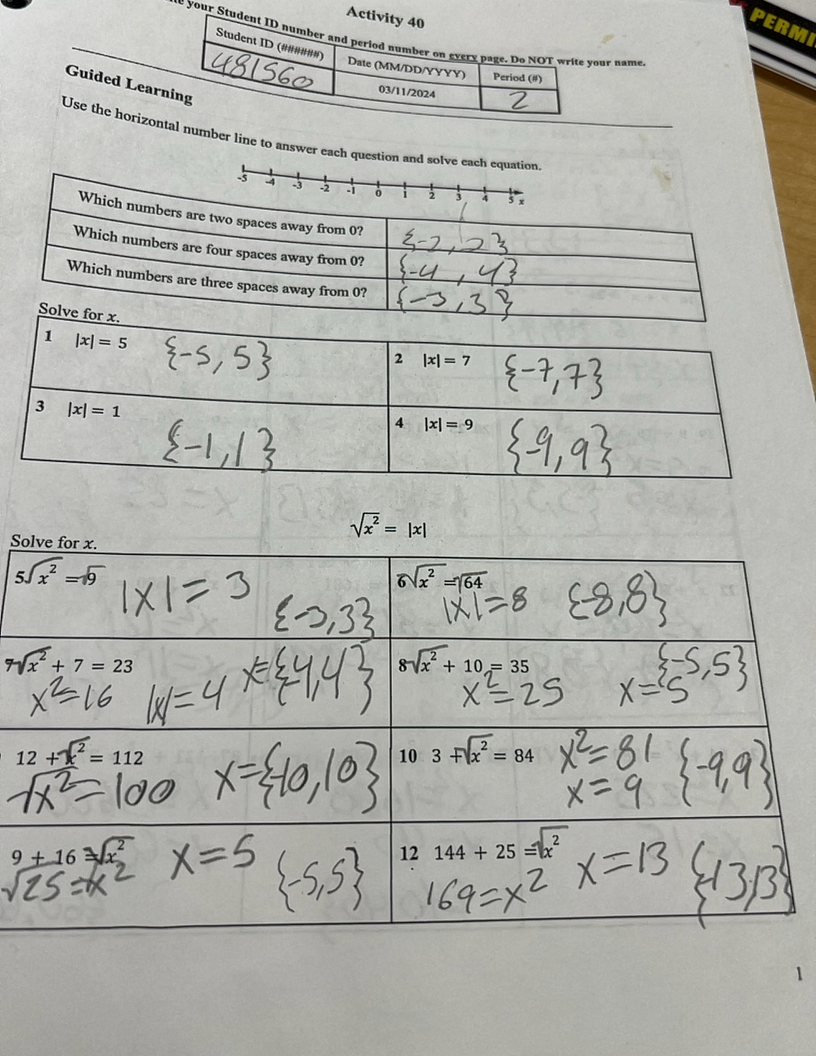 Activity 40
your Student ID number and period number on every page. Do NOT write your name.
Student ID (######) Date (MM/DD/YYYY) Period (#)
481560 03/11/2024 2
PERMI
Guided Learning
Use the horizontal number line to answer each question and solve each equation.
-5 -4 -3 -2 -1 0 1 2 3 4 5 x
Which numbers are two spaces away from 0? {-2, 2}
Which numbers are four spaces away from 0? {-4, 4}
Which numbers are three spaces away from 0? {-3, 3}
Solve for x.
1 |x| = 5 {-5, 5}
2 |x| = 7 {-7, 7}
3 |x| = 1 {-1, 1}
4 |x| = 9 {-9, 9}
√x² = |x|
Solve for x.
5 √x² = √9 |x| = 3 {-3, 3}
6 √x² = √64 |x| = 8 {-8, 8}
7 √x² + 7 = 23
x² = 16 |x| = 4 x = {-4, 4}
8 √x² + 10 = 35 {-5, 5}
x² = 25 x = 5
12 + √x² = 112
√x² = 100 x = {-10, 10}
10 3 + √x² = 84 x² = 81 {-9, 9}
x = 9
9 + 16 = √x² x = 5 {-5, 5}
√25 = x²
12 144 + 25 = √x² x = 13 {-13, 13}
169 = x²
1